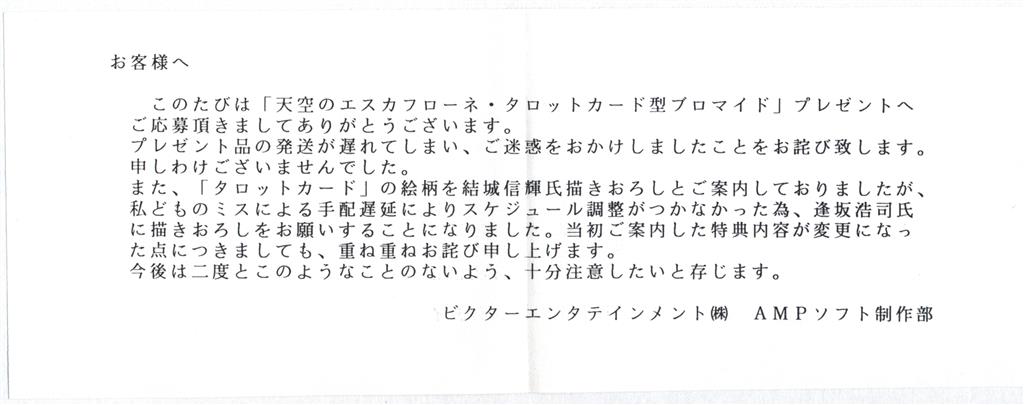 お客様へ
このたびは「天空のエスカフローネ・タロットカード型ブロマイド」プレゼントへ
ご応募頂きましてありがとうございます。
プレゼント品の発送が遅れてしまい、ご迷惑をおかけしましたことをお詫び致します。
申しわけございませんでした。
また、「タロットカード」の絵柄を結城信輝氏描きおろしとご案内しておりましたが、
私どものミスによる手配遅延によりスケジュール調整がつかなかった為、逢坂浩司氏
に描きおろしをお願いすることになりました。当初ご案内した特典内容が変更になっ
た点につきましても、重ね重ねお詫び申し上げます。
今後は二度とこのようなことのないよう、十分注意したいと存じます。
ビクターエンタテインメント㈱　ＡＭＰソフト制作部